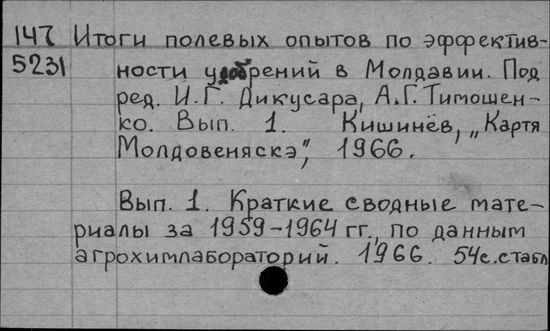 147 Итоги полевых опытов по эффектив-
5231 ности удобрений в Молдавии. Под
ред. И.Г. Дикусара, А.Г. Тимошен-
ко. Вып. 1. Кишинёв, „Картя
Молдовеняскэ", 1966.
Вып. 1. Краткие сводные мате-
риалы за 1959-1964 гг., по данным
агрохимлабораторий. 1966. 54с. с табл